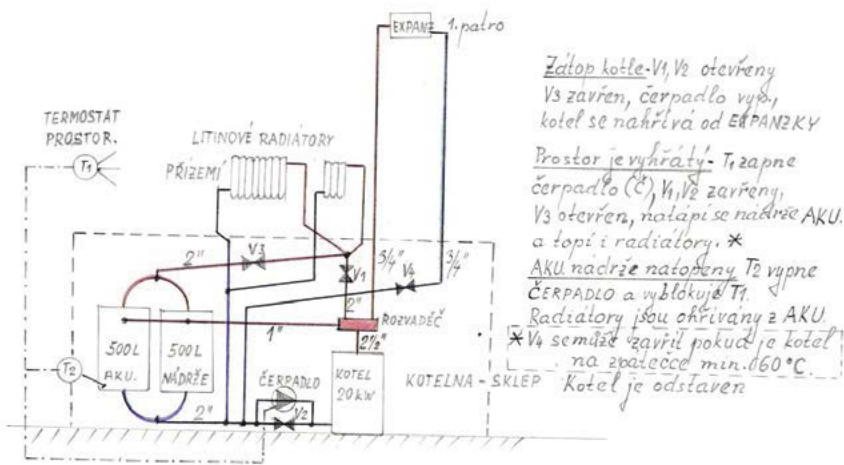 EXPANZ 1. patro
TERMOSTAT
PROSTOR.
T1
LITINOVÉ RADIÁTORY
PŘÍZEMÍ
2"
V3
V1
2"
3/4"
V4
3/4"
ROZVADĚČ
1"
2 1/2"
500L
AKU.
500L
NÁDRŽE
T2
2"
ČERPADLO
V2
KOTEL
20 kW
KOTELNA - SKLEP
Zátop kotle - V1, V2 otevřeny
V3 zavřen, čerpadlo vyp.,
kotel se nahřívá od EXPANZKY
Prostor je vyhřátý - T1 zapne
čerpadlo (Č), V1, V2 zavřeny,
V3 otevřen, natápí se nádrže AKU.
a topí i radiátory. *
AKU nádrže natopeny T2 vypne
ČERPADLO a vyblokuje T1.
Radiátory jsou ohřívány z AKU.
* V4 se může zavřít pokud je kotel
na zpátečce min. 060°C.
Kotel je odstaven